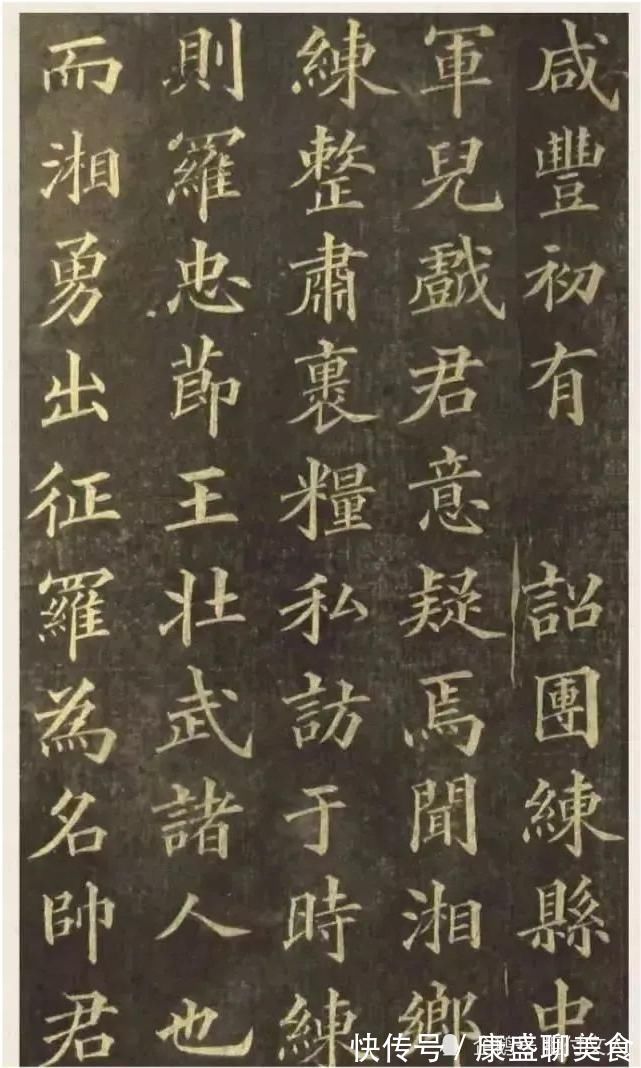 咸豐初有 詔團練縣中
軍兒戲君意疑焉聞湘鄉
練整肅裹糧私訪于時練
則羅忠節王壯武諸人也
而湘勇出征羅為名帥君
快传号/康盛聊美食